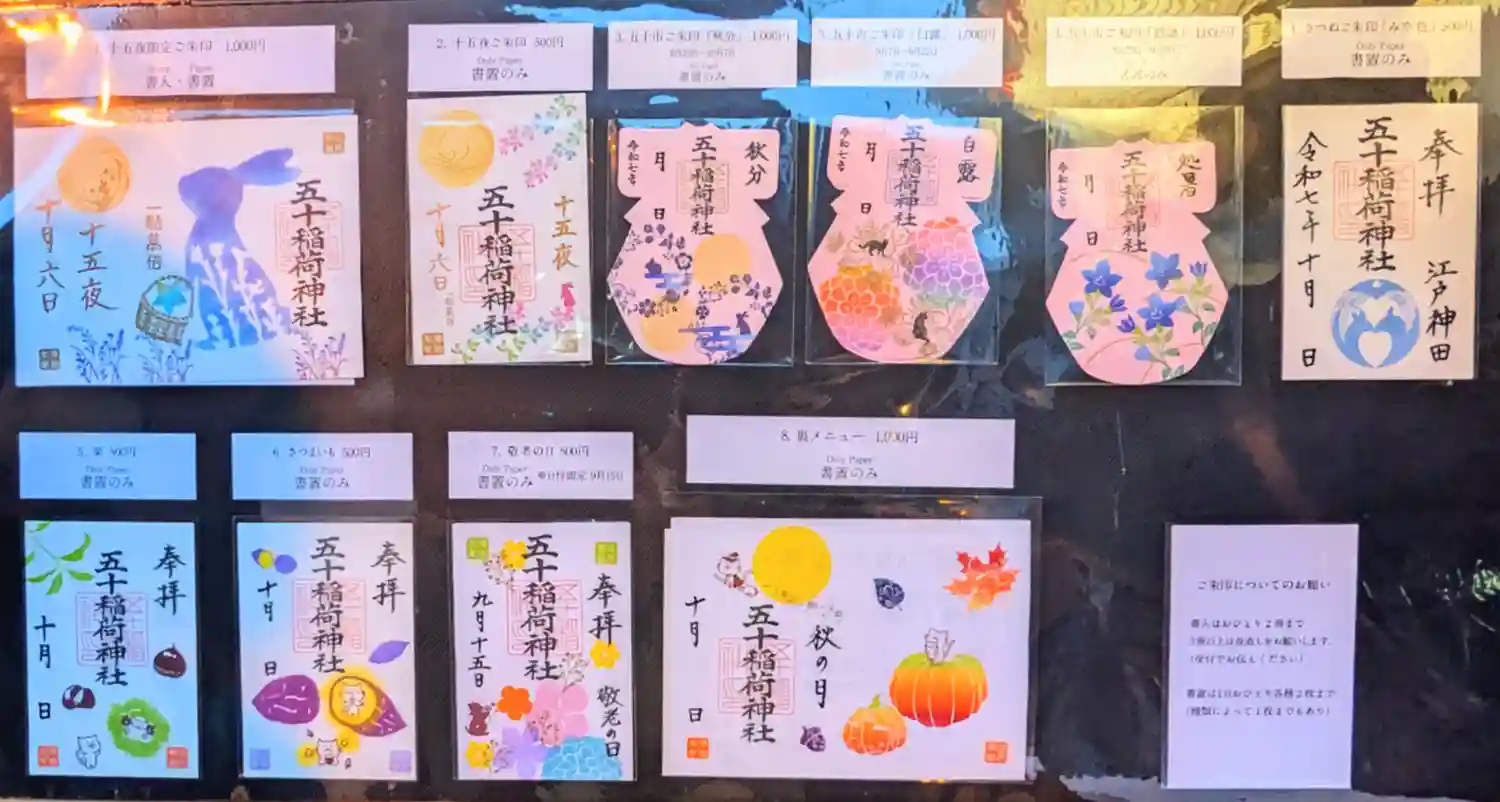 1. 十五夜限定ご朱印 1,000円
書入・書置
2. 十五夜ご朱印 500円
Only Paper
書置のみ
3. 五十市ご朱印「秋分」 1,000円
書置のみ
五十市ご朱印「白露」 1,000円
書置のみ
五十市ご朱印「処暑」 1,000円
きつねご朱印「みや色」 500円
Only Paper
書置のみ
十五夜
十月六日
五十稲荷神社
十五夜
五十稲荷神社
十月六日
秋分
五十稲荷神社
月 日
令和七年
白露
五十稲荷神社
月 日
令和七年
処暑
五十稲荷神社
月 日
令和七年
奉拝 江戸神田
五十稲荷神社
令和七年十月 日
5. 栗 500円
Only Paper
書置のみ
6. さつまいも 500円
Only Paper
書置のみ
7. 敬老の日 500円
Only Paper
書置のみ ※日付限定 9月15日
8. 裏メニュー 1,000円
Only Paper
書置のみ
奉拝
五十稲荷神社
十月 日
奉拝
五十稲荷神社
十月 日
奉拝
敬老の日
五十稲荷神社
九月十五日
秋の月
五十稲荷神社
十月 日
ご朱印についてのお願い
書入はおひとり2冊まで
(受付でお伝えください)
書置は1日おひとり各種2枚まで
(種類によって1枚までもあり)